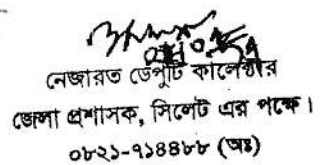 নেজারত ডেপুটি কালেক্টর
জেলা প্রশাসক, সিলেট এর পক্ষে।
০৮২১-৭১৪৪৮৮ (অঃ)